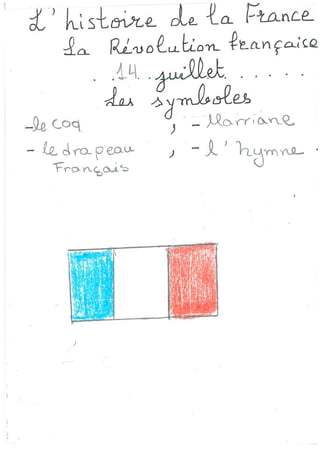 L'histoire de la France
La Révolution française
. . 14 juillet . . . . .
Les symboles
- le coq , - Marriane
- le drapeau , - l'hymne
Français